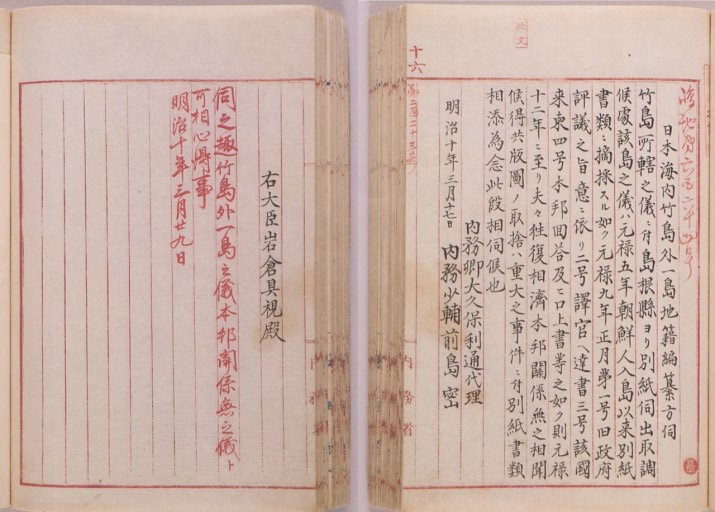 日本海内竹島外一島地籍編纂方伺
竹島所轄之儀ニ付島根縣ヨリ別紙伺出取調
候處該島之儀ハ元禄五年朝鮮人入島以来別紙
書類ニ摘採スル如ク元禄九年正月第一号旧政府
評議之旨意ニ依リ二号譯官ヘ達書三号該國
来柬四号本邦回答及ヒ口上書等之如ク則元禄
十二年ニ至リ夫々往復相濟本邦關係無之相聞
候得共版圖ノ取捨ハ重大之事件ニ付別紙書類
相添為念此段相伺候也
内務卿大久保利通代理
明治十年三月十七日 内務少輔前島密
十六
内務省
右大臣岩倉具視殿
伺之趣竹島外一島之儀本邦關係無之儀ト
可相心得事
明治十年三月廿九日